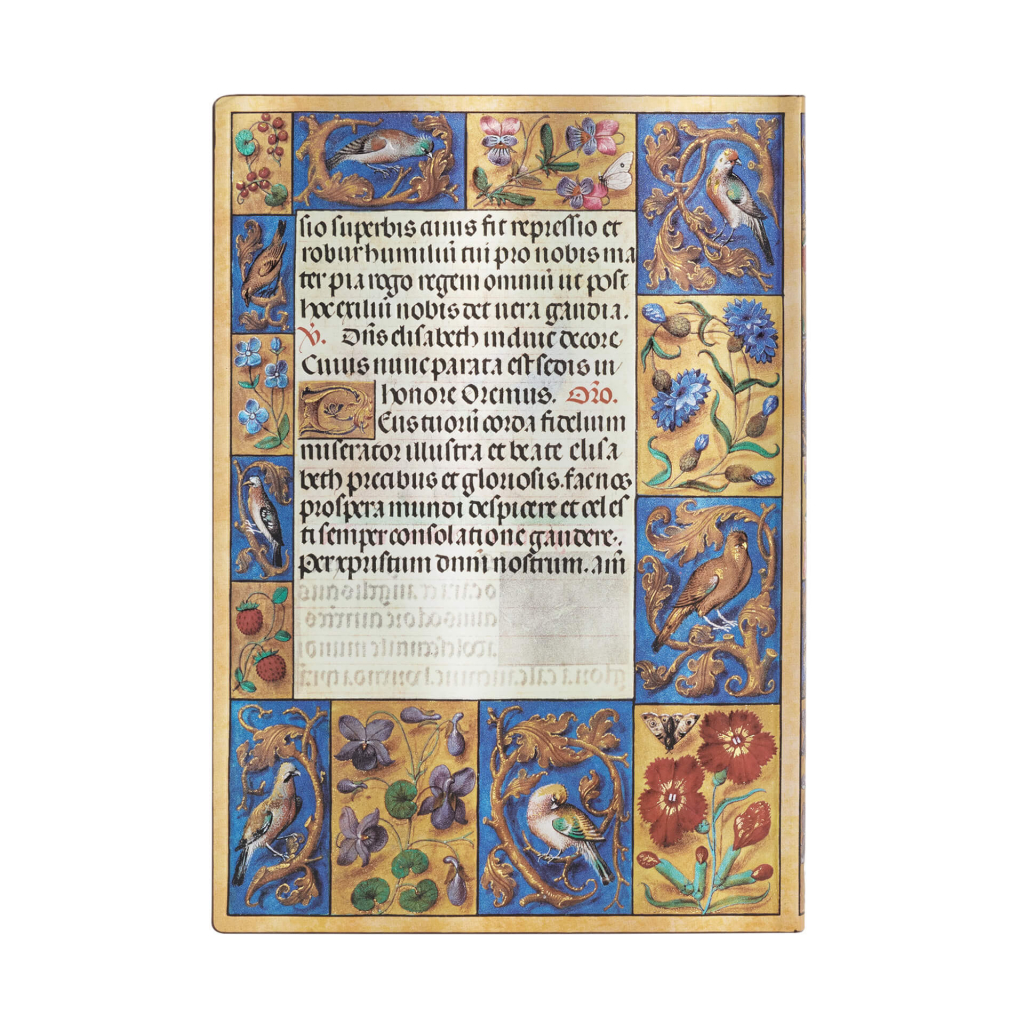 sio superbis cuius fit repressio et
robur humiliū tui pro nobis ma
ter pia rogo regem omniū ut post
hoc exiliū nobis det uera gaudia.
V. Dūs elisabeth induit decore
Cuius nunc parata est sedis in
honore Oremus. Oro.
Deus tuorū corda fidelium
miserator illustra et beate elisa
beth precibus et gloriosis. fac nos
prospera mundi despicere et celes
ti semper consolatione gaudere.
Per xpristum dnm̄ nostrum. am̄